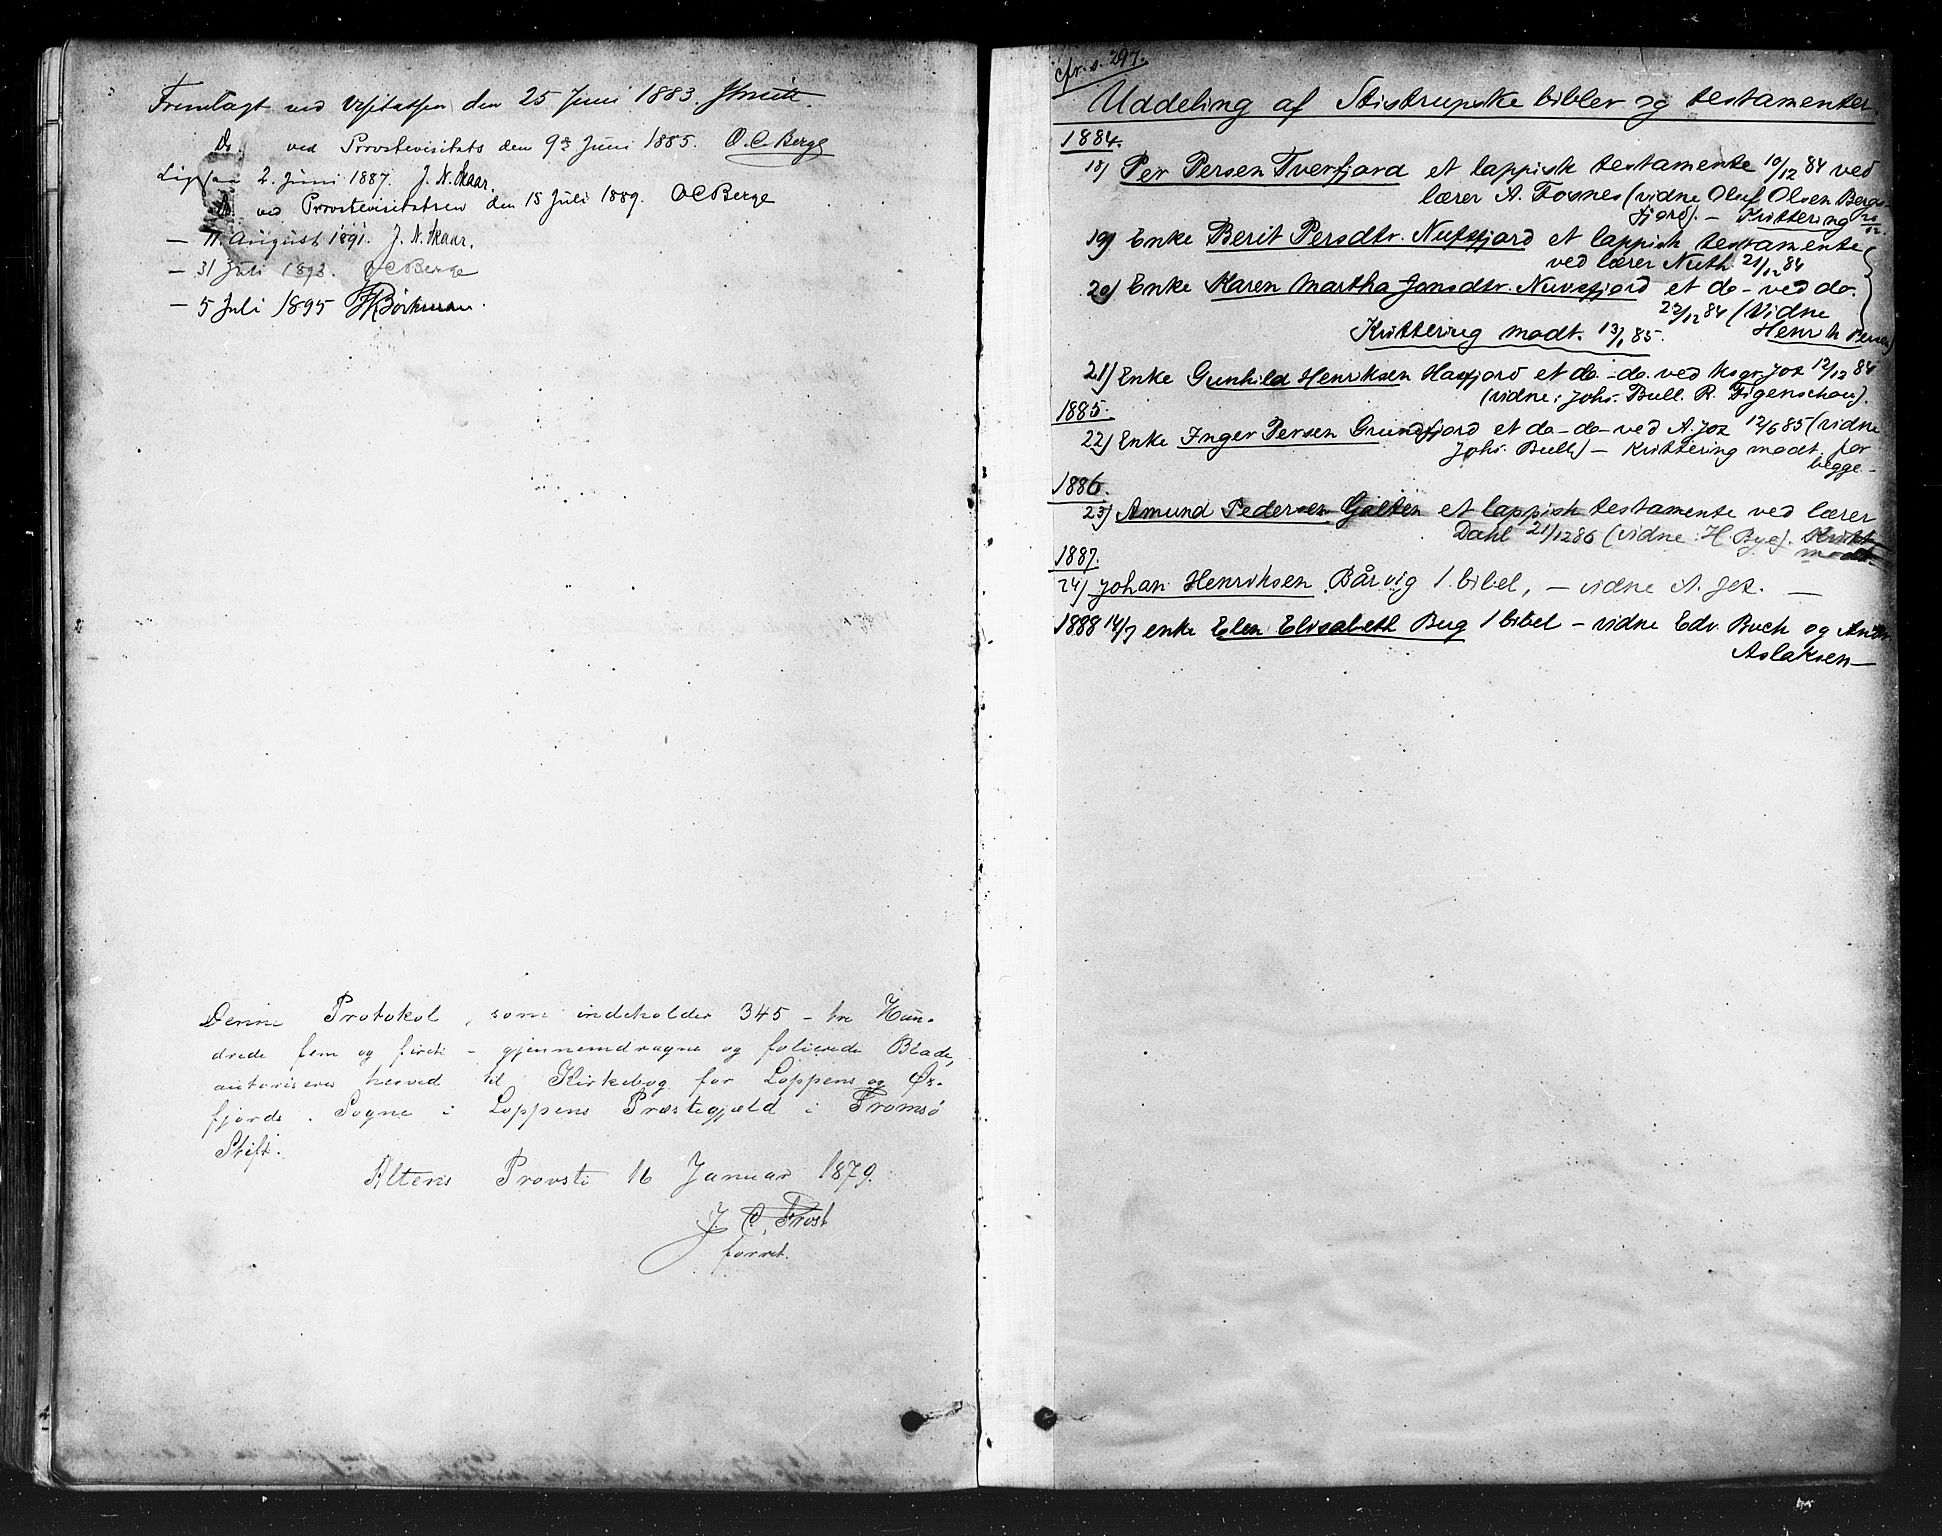 Fremlagt ved Visitatsen den 25 Juni 1883.
Do. ved Provstevisitats den 9de Juni 1885. O. C. Berge
Ligesaa 2. Juni 1887. J. N. Skaar.
Do. ved Provstevisitatsen den 15 Juli 1889. O C Berge
— 11. August 1891. J. N. Skaar.
— 31 Juli 1893. O C Berge
— 5 Juli 1895
Denne Protokol, som indeholder 345 - tre Hun-
drede fem og firti - gjennemdragne og folierede Blade,
autoriseres herved til Kirkebog for Loppens og Øx-
fjords Sogne i Loppens Præstegjæld i Tromsö
Stift.
Altens Provsti 16 Januar 1879.
J. C. Frost
forret.
cfr. s. 297.
Uddeling af Stistrupske bibler og testamenter.
1884.
18) Per Persen Tverfjord et lappisk testamente 10/12 84 ved
lærer A. Fosnes (vidne Oluf Olsen Bergs-
fjord). — Kvittering
19) Enke Berit Persdtr. Nufsfjord et lappisk testamente
ved lærer Nuth 21/12 84
20) Enke Karen Martha Jonsdtr. Nuvsfjord et do - ved do.
22/12 84 (Vidne
Kvittering modt. 13/1 85. Henrik Persen)
21) Enke Gunhild Henriksen Hasfjord et do. - do. ved ksgr. Joz 12/12 84
(vidne: Johs. Bull. R. Figenschou).
1885.
22) Enke Inger Persen Grundfjord et do - do - ved A. Joz 12/6 85 (vidne
Johs. Bull) — Kvittering modt. for
begge -
1886.
23) Amund Pedersen Galten et lappisk testamente ved lærer
Dahl 21/12 86 (vidne: H. Bye). Kvitt.
modt.
1887.
24) Johan Henriksen Bårvig 1 bibel, — vidne A. Joz. —
1888 14/7 enke Elen Elisabeth Bug 1 bibel — vidne Edv. Buch og
Aslaksen —